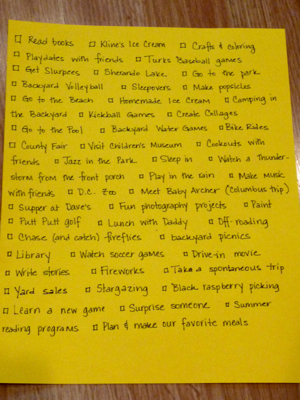 □ Read books □ Kline's Ice Cream □ Crafts & coloring
□ Playdates with friends □ Turks Baseball games
□ Get Slurpees □ Sherando Lake □ Go to the park
□ Backyard Volleyball □ Sleepovers □ Make popsicles
□ Go to the Beach □ Homemade Ice Cream □ Camping in
the Backyard □ Kickball Games □ Create Collages
□ Go to the Pool □ Backyard Water Games □ Bike Rides
□ County Fair □ Visit Children's Museum □ Cookouts with
friends □ Jazz in the Park □ Sleep in □ Watch a Thunder-
storm from the front porch □ Play in the rain □ Make music
with friends □ D.C. Zoo □ Meet Baby Archer (Columbus trip)
□ Supper at Dave's □ Fun photography projects □ Paint
□ Putt Putt golf □ Lunch with Daddy □ Off-roading
□ Chase (and catch) fireflies □ backyard picnics
□ Library □ Watch soccer games □ Drive-in movie
□ Write stories □ Fireworks □ Take a spontaneous trip
□ Yard sales □ Stargazing □ Black raspberry picking
□ Learn a new game □ Surprise someone □ Summer
reading programs □ Plan & make our favorite meals